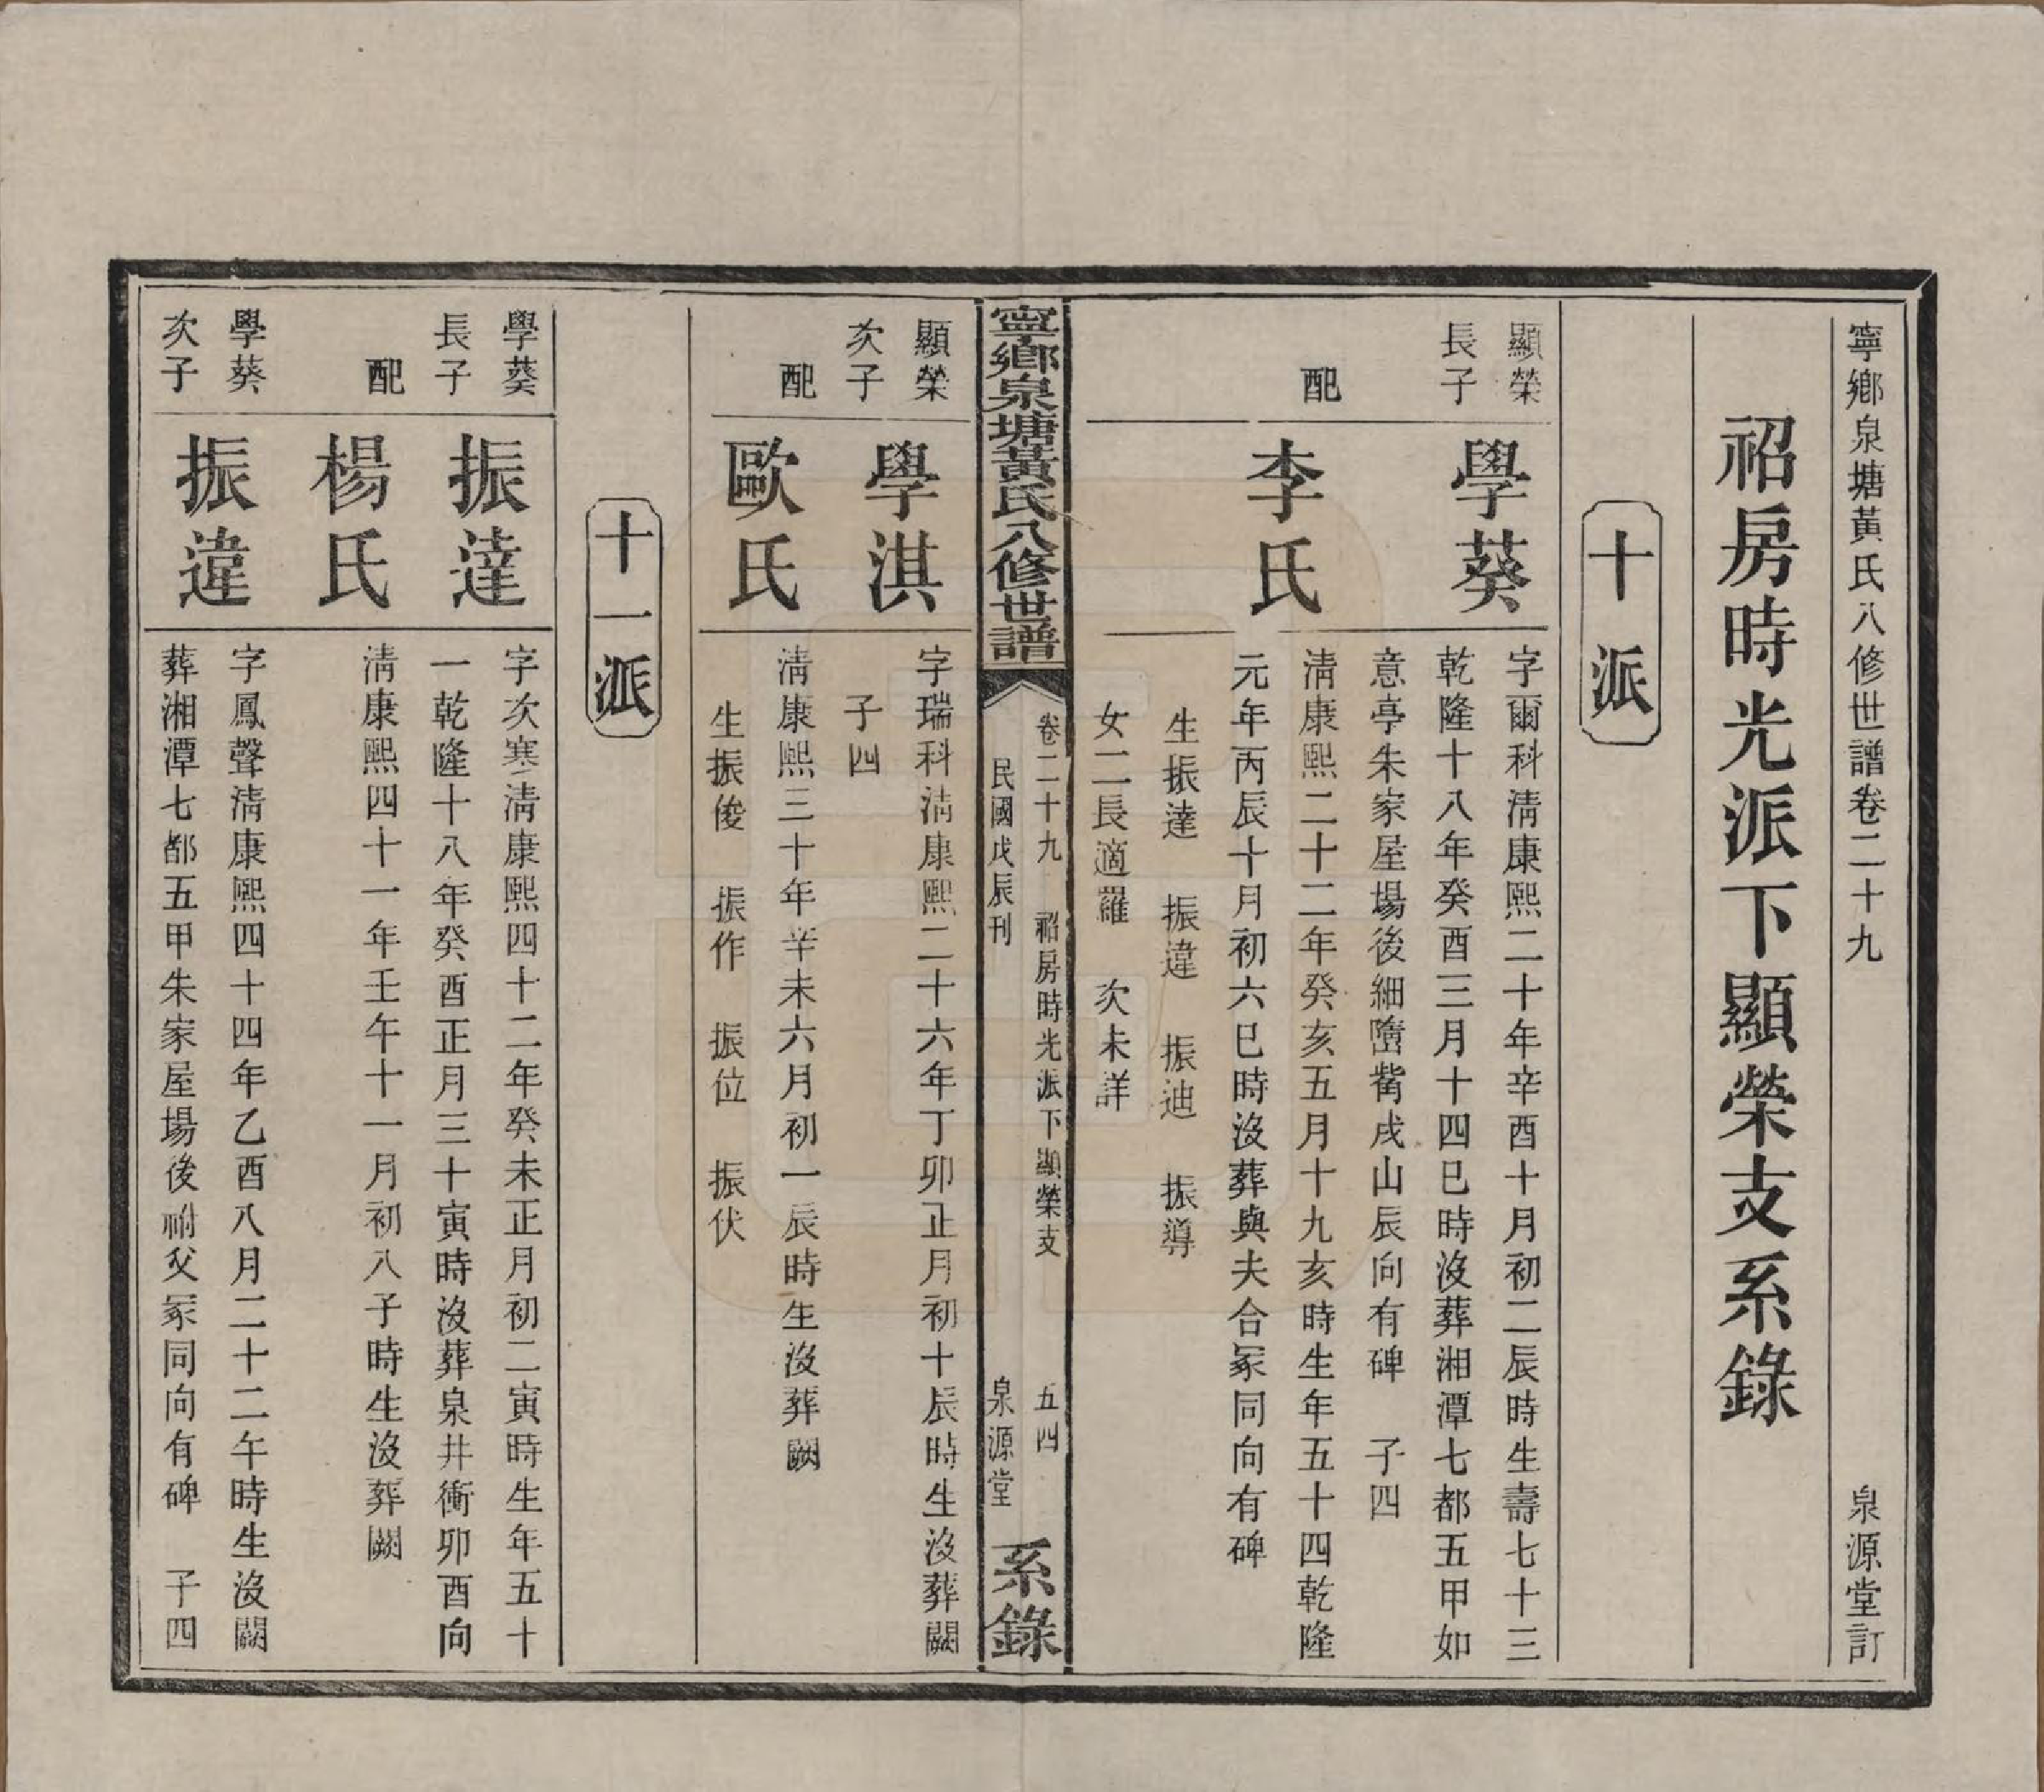 寧鄉泉塘黃氏八修世譜卷二十九
泉源堂訂
祒房時光派下顯榮支系錄
十派
顯榮
長子
學葵
字爾科淸康熙二十年辛酉十月初二辰時生壽七十三
乾隆十八年癸酉三月十四巳時沒葬湘潭七都五甲如
意亭朱家屋場後細嶞嘴戌山辰向有碑 子四
配
李氏
淸康熙二十二年癸亥五月十九亥時生年五十四乾隆
元年丙辰十月初六巳時沒葬與夫合冢同向有碑
生振達 振違 振迪 振導
女二長適羅 次未詳
寧鄉泉塘黃氏八修世譜
卷二十九 祒房時光派下顯榮支 五四
民國戊辰刊
泉源堂
系錄
顯榮
次子
學淇
字瑞科淸康熙二十六年丁卯正月初十辰時生沒葬闕
子四
配
歐氏
淸康熙三十年辛未六月初一辰時生沒葬闕
生振俊 振作 振位 振伏
十一派
學葵
長子
振達
字次寒淸康熙四十二年癸未正月初二寅時生年五十
一乾隆十八年癸酉正月三十寅時沒葬泉井衝卯酉向
配
楊氏
淸康熙四十一年壬午十一月初八子時生沒葬闕
學葵
次子
振違
字鳳聲淸康熙四十四年乙酉八月二十二午時生沒闕
葬湘潭七都五甲朱家屋場後祔父冢同向有碑 子四